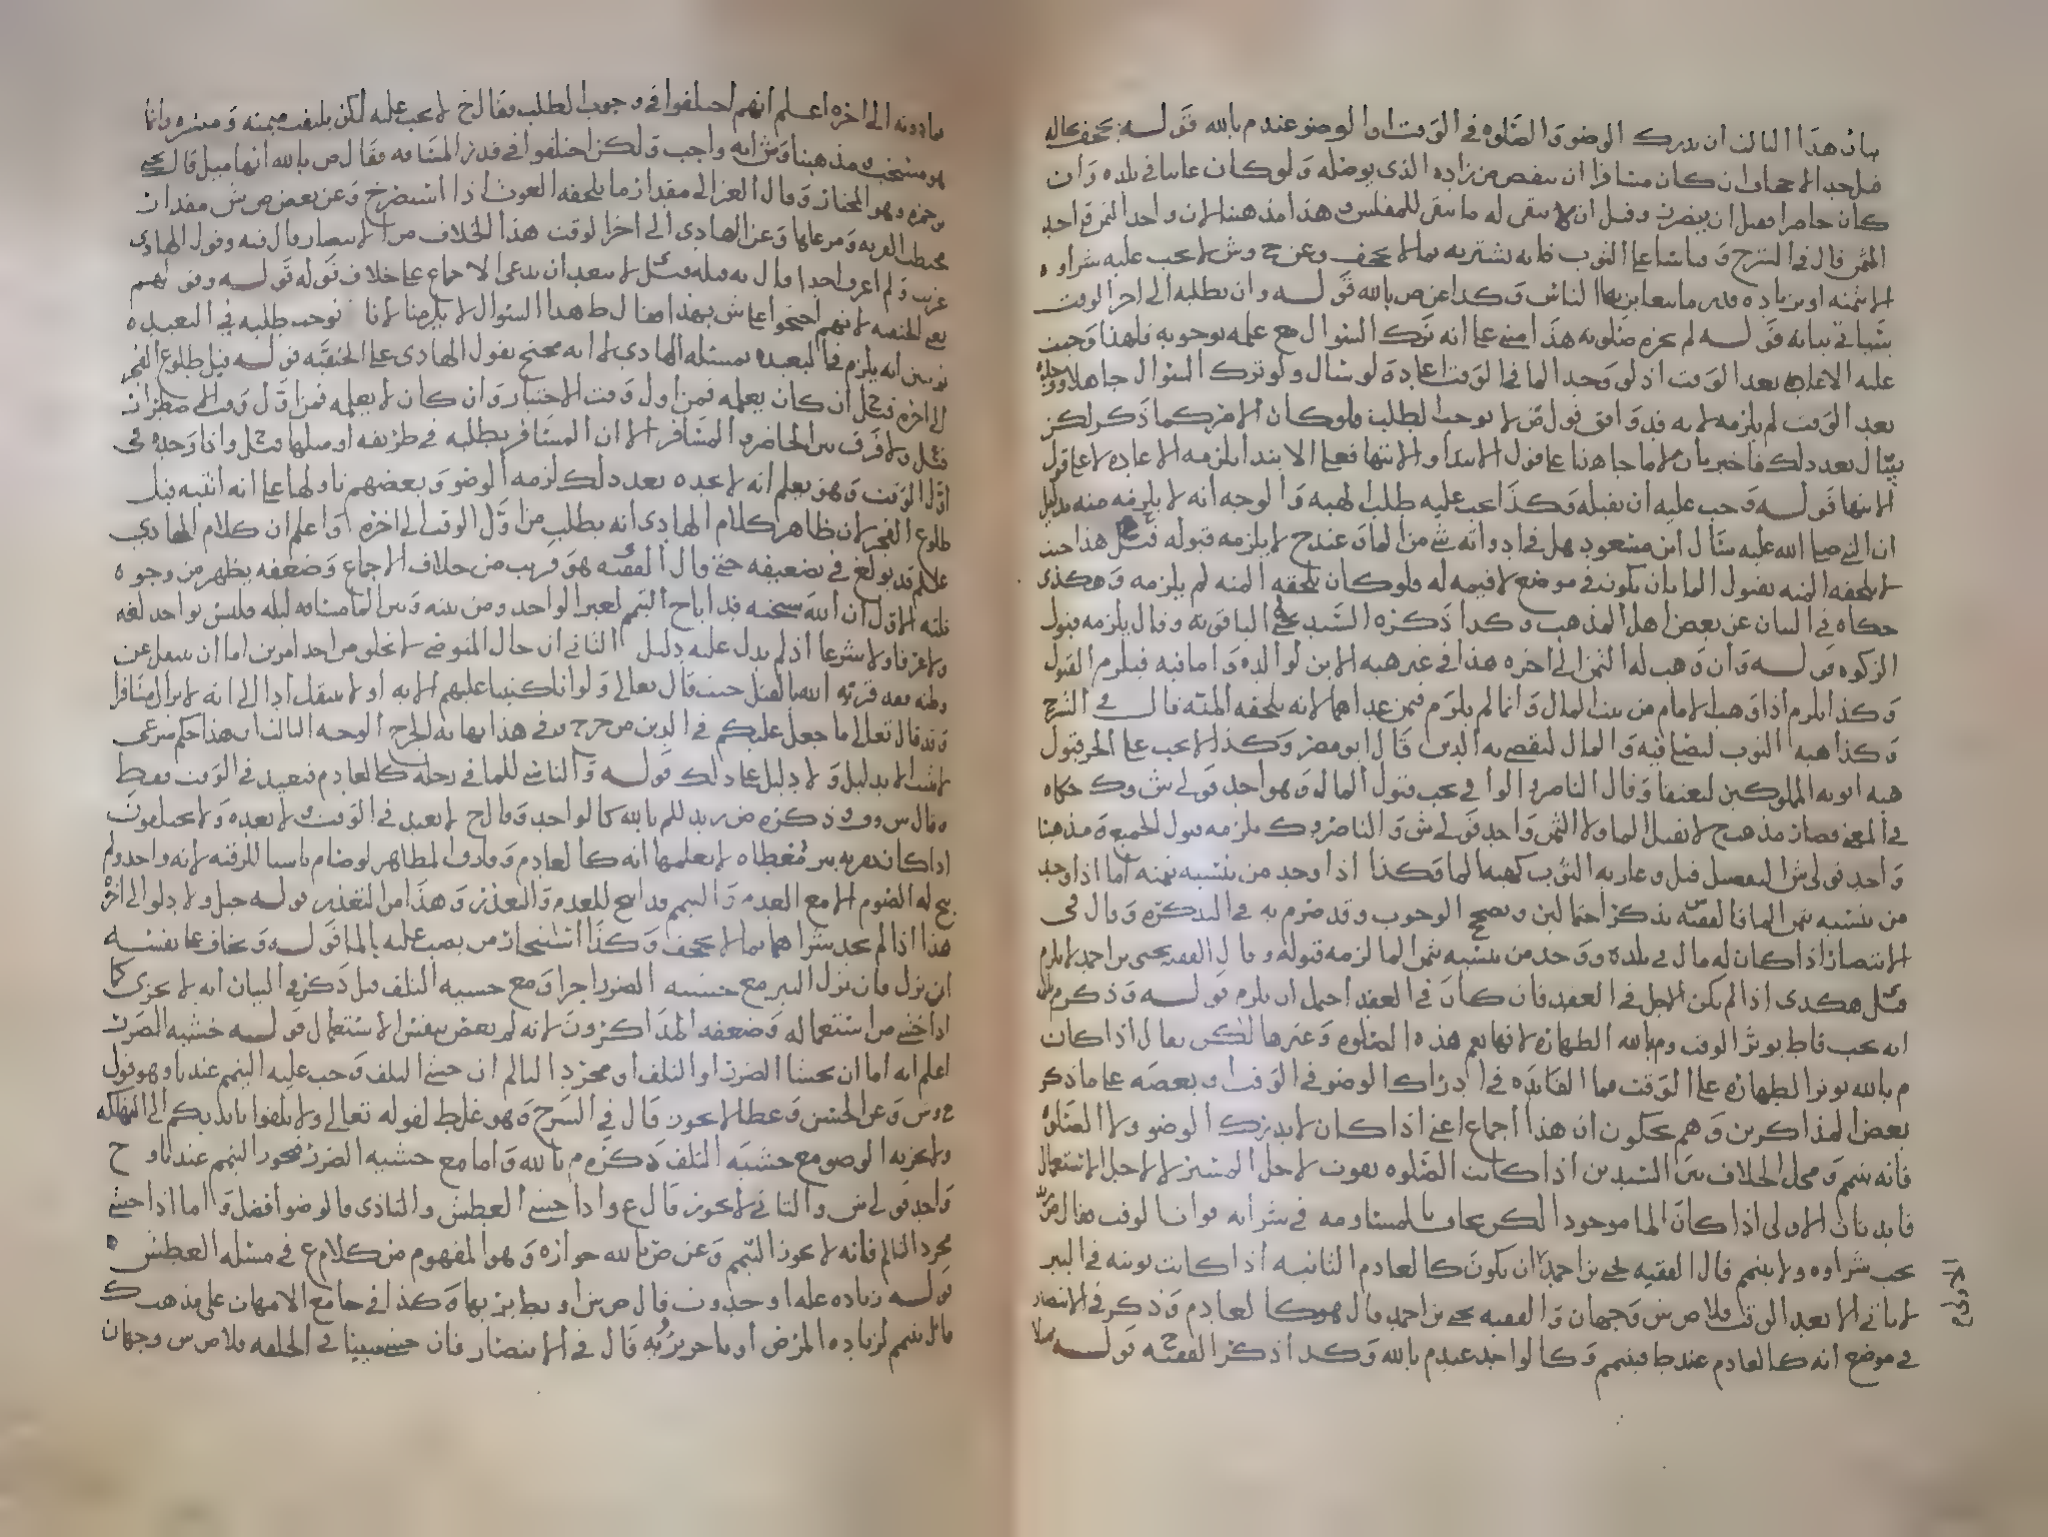 بيان هذا الثالث ان يدرك الوضو والصلوه في الوقت او الوضو عند م بالله قوله يجحف بحاله
قيل حد الاجحاف ان كان مسافرا ان ينقص من زاده الذي يوصله ولو كان غائبا في بلده وان
كان حاضرا فقيل ان يتضرر وقيل ان لا يبقى له ما يبقى للمفلس وهذا مذهبنا لان واحد الثمن كواحد
المثمن قال في الشرح وقياسا على الثوب فانه يشتريه بما لا يجحف وعن ح وش لا يجب عليه شراوه
الا بثمنه او بزياده قدر ما يتغابن بها الناس وكذا عن ص بالله قوله وان يطلبه الى اخر الوقت
بيانه قوله لم يجزه صلوته هذا مبني على انه ترك السوال مع علمه بوجوبه فلهذا وجبت
عليه الاعاده بعد الوقت اذ لو وجد الما في الوقت اعاده لو سال ولو ترك السوال جاهلا
بعد الوقت لم يلزمه لانه قد وافق قول من لا يوجب الطلب فلو كان الامر كما ذكر لكن
سال بعد ذلك فاخبر بان الما جاهنا على قول الابتدا والانتها فعلى الابتدا يلزمه الاعاده لا على قول
الانتها قوله وجب عليه ان يقبله وكذا يجب عليه طلب الهبه والوجه انه لا يلزمه منه بدليل
ان النبي صلى الله عليه سال ابن مسعود هل في اداوته شي من الما وعند ح لا يلزمه قبوله قيل هذا حيث
لا تلحقه المنه بقبول الما بان يكون في موضع لا قيمه له فلو كان تلحقه المنه لم يلزمه وهكذى
حكاه في البيان عن بعض اهل المذهب وكذا ذكره السيد يحيى الباقوته وقال يلزمه قبول
الزكوه قوله وان وهب له الثمن الى اخره هذا في غير هبه الابن لوالده واما فيه فيلزم القبول
وكذا يلزم اذا وهب الامام من بيت المال وانما لم يلزم فيمن عداهما لانه تلحقه المنه قال في الشرح
وكذا هبه الثوب ليصلي فيه والمال ليقضي به الدين قال ابو مضر وكذا لا يجب على الحر قبول
هبه ابويه المملوكين ليعتقا وقال الناصر والوافي يجب قبول المال وهو احد قولي ش وك حكاه
في المغني فصار مذهب ح لا يقبل الما ولا الثمن واحد قولي ش والناصر وك يلزمه قبول الجميع ومذهبنا
واحد قولي ش التفصيل قيل وعاريه الثوب كهبه الما وكذا اذا وجد من ينسيه بثمنه اما اذا وجد
من ينسيه ثمن الما فالفقيه س يذكر احتمالين وصحح الوجوب وقد صرح به في التذكره وقال في
الانتصار اذا كان له مال في بلده ووجد من ينسيه ثمن الما لزمه قبوله وقال الفقيه يحيى بن احمد لا يلزم
قيل هكذى اذا لم يكن الاجل في العقد فان كان في العقد احتمل ان يلزم قوله وذكر م بالله
انه يجب قاطر بوثر الوقت وم بالله الطهاره لانها تعم هذه الصلوه وغيرها لكن يقال اذا كان
م بالله يوثر الطهاره على الوقت فما الفائده في ادراك الوضو في الوقت وبعضه على ما ذكر
بعض المذاكرين وهم يحكون ان هذا اجماع اعني اذا كان لا يدرك الوضو ولا الصلوه
فانه يتيمم ومحل الخلاف بين السيدين اذا كانت الصلوه تفوت لاجل المسير لا لاجل الاستعمال
فائدتان الاولى اذا كان الما موجود الكن يخاف بالمساومه في شرائه فوات الوقت فقال ص
يجب شراوه ولا يتيمم قال الفقيه يحيى بن احمد ان يكون كالعادم الثانيه اذا كانت نوبته في البير
لا ياتي الا بعد الوقت فلاص ش وجهان والفقيه يحيى بن احمد قال هو كالعادم وذكر في الانتصار
في موضع انه كالعادم عند ط فيتيمم وكالواجد عند م بالله وكذا ذكر الفقيه ح قوله ميلا
فما دونه الى اخره اعلم انهم اختلفوا في وجوب الطلب فقال ح لا يجب عليه لكن يلتفت يمينه وميسره وانما
هو مستحب ومذهبنا وش انه واجب ولكن اختلفوا في قدر المسافه فقال ص بالله انها ميل قال يحيى
بن حمزه وهو المختار وقال الغزالي مقدار ما يلحقه الغوث اذا استصرخ وعن بعض ص ش مقدار
محيط القريه ومرعاها وعن الهادي الى اخر الوقت هذا الخلاف من الانتصار قال فيه وقول الهادي
غريب ولم اعرف احدا قال به قبله قيل لا يبعد ان يدعى الاجماع على خلاف قوله قوله وقولهم
يعني الحنفيه لانهم احتجوا على ش بهذا فقال ط هذا السوال لا يلزمنا لانا نوجب طلبه في البعيد
انه يلزم في البعيده بمسئله الهادي لانه محتج بقول الهادي على الحنفيه قوله قبل طلوع الفجر
الى اخره قيل ان كان يعلمه فمن اول وقت الاختيار وان كان لا يعلمه فمن اول وقت الاضطرار
قيل ولا فرق بين الحاضر والمسافر الا ان المسافر يطلبه في طريقه او ميلها قيل واذا وجده في
اول الوقت وهو يعلم انه لا يجده بعد ذلك لزمه الوضو وبعضهم تاولها على انه انتبه قبل
طلوع الفجر لان ظاهر كلام الهادي انه يطلب من اول الوقت الى اخره واعلم ان كلام الهادي
علم قد بولغ في تضعيفه حتى قال الفقيه هو قريب من خلاف الاجماع وضعفه يظهر من وجوه
ثلثه الاول ان الله سبحنه قد اباح التيمم لغير الواجد ومن بينه وبين الما مسافه ليله فليس بواجد لغه
ولا عرفا ولا شرعا اذ لم يدل عليه دليل الثاني ان حال المتوضي لا يخلو من احد امرين اما ان ينتقل عن
وطنه فقد قرنه الله بالقتل حيث قال تعالى ولو انا كتبنا عليهم الايه او لا ينتقل ادا الى انه لا يزال مسافرا
وقد قال تعالى ما جعل عليكم في الدين من حرج وفي هذا نهايه الحرج الوجه الثالث ان هذا حكم شرعي
لا يثبت الا بدليل ولا دليل على ذلك قوله والناسي للما في رحله كالعادم فيعيد في الوقت فقط
وقال س وف وذكره ض زيد للم بالله كالواجد وقال ح لا يعيد في الوقت ولا بعده ولا يختلفون
اذا كان بقربه بير مغطاه لا يعلمها انه كالعادم وفارق المظاهر لو صام ناسيا للرقبه لانه واجد ولم
يبح له الصوم الا مع العدم والتيمم قد ابيح للعدم والتعذر وهذا من التعذر قوله حبل ولا دلو الى اخره
هذا اذا لم يجد شراهما بما لا يجحف وكذا استئجار من يصب عليه الما قوله ويخاف على نفسه
ان نزل فان نزل البير مع خشيه الضرر اجزا ومع خشيه التلف قيل ذكر في البيان انه لا يجزي كما
اذا خشي من استعماله وضعفه المذاكرون لانه لم يعص بنفس الاستعمال قوله خشيه الضرر
اعلم انه اما ان يخشا الضرر او التلف او مجرد التالم ان خشي التلف وجب عليه التيمم عندنا وهو قول
ح وس وعن الحسن وعطا لا يجوز قال في الشرح وهو غلط لقوله تعالى ولا تلقوا بايديكم الى التهلكه
ولا يجزيه الوضو مع خشيه التلف ذكره م بالله واما مع خشيه الضرر فيجوز التيمم عندنا و ح
واحد قولي ش والثاني لا يجوز قال ع واذا خشي العطش والتاذي فالوضو افضل واما اذا خشي
مجرد التالم فانه لا يجوز التيمم وعن ض بالله جوازه وهو المفهوم من كلام ع في مسئله العطش
قوله زياده عله او حدوث قال ص ش او بطو برئها كذا في جامع الامهات على مذهب ك
قال يتيمم لزياده المرض او تاخر برئه قال في الانتصار فان خشي شينا في الخلقه فلاص س وجهان